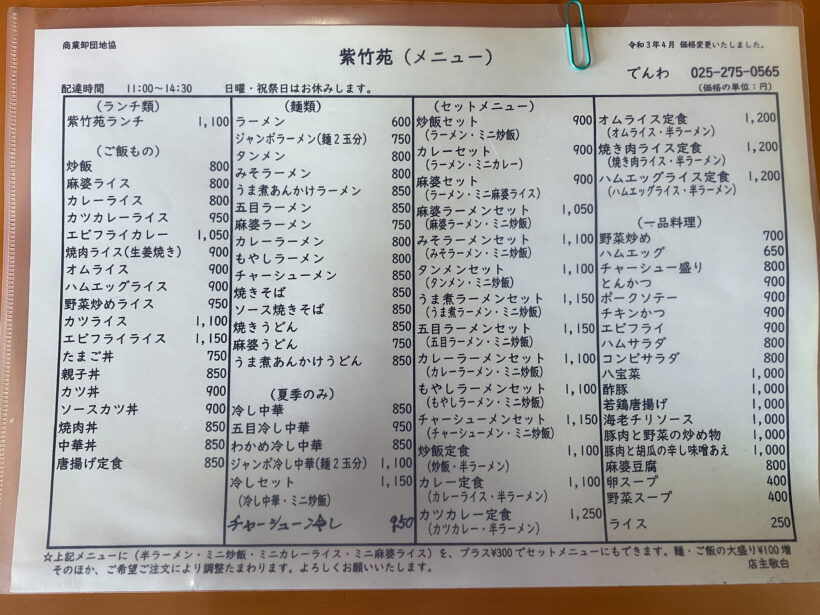 商業卸団地協
紫竹苑（メニュー）
令和3年4月 価格変更いたしました。
でんわ 025-275-0565
配達時間 11:00〜14:30 日曜・祝祭日はお休みします。
（価格の単位：円）
（ランチ類）
紫竹苑ランチ 1,100
（ご飯もの）
炒飯 800
麻婆ライス 800
カレーライス 800
カツカレーライス 950
エビフライカレー 1,050
焼肉ライス（生姜焼き） 900
オムライス 900
ハムエッグライス 900
野菜炒めライス 950
カツライス 1,100
エビフライライス 1,150
たまご丼 750
親子丼 850
カツ丼 900
ソースカツ丼 900
焼肉丼 850
中華丼 850
唐揚げ定食 850
（麺類）
ラーメン 600
ジャンボラーメン（麺2玉分） 750
タンメン 800
みそラーメン 800
うま煮あんかけラーメン 850
五目ラーメン 850
麻婆ラーメン 850
カレーラーメン 800
もやしラーメン 800
チャーシューメン 850
焼きそば 850
ソース焼きそば 850
焼きうどん 850
麻婆うどん 850
うま煮あんかけうどん 850
（夏季のみ）
冷し中華 850
五目冷し中華 950
わかめ冷し中華 850
ジャンボ冷し中華（麺2玉分） 1,100
冷しセット 1,150
（冷し中華・ミニ炒飯）
チャーシュー冷し 950
（セットメニュー）
炒飯セット 900
（ラーメン・ミニ炒飯）
カレーセット 900
（ラーメン・ミニカレー）
麻婆セット 900
（ラーメン・ミニ麻婆ライス）
麻婆ラーメンセット 1,050
（麻婆ラーメン・ミニ炒飯）
みそラーメンセット 1,100
（みそラーメン・ミニ炒飯）
タンメンセット 1,100
（タンメン・ミニ炒飯）
うま煮ラーメンセット 1,150
（うま煮ラーメン・ミニ炒飯）
五目ラーメンセット 1,150
（五目ラーメン・ミニ炒飯）
カレーラーメンセット 1,100
（カレーラーメン・ミニ炒飯）
もやしラーメンセット 1,100
（もやしラーメン・ミニ炒飯）
チャーシューメンセット 1,150
（チャーシューメン・ミニ炒飯）
炒飯定食 1,100
（炒飯・半ラーメン）
カレー定食 1,100
（カレーライス・半ラーメン）
カツカレー定食 1,250
（カツカレー・半ラーメン）
オムライス定食 1,200
（オムライス・半ラーメン）
焼き肉ライス定食 1,200
（焼き肉ライス・半ラーメン）
ハムエッグライス定食 1,200
（ハムエッグライス・半ラーメン）
（一品料理）
野菜炒め 700
ハムエッグ 650
チャーシュー盛り 800
とんかつ 900
ポークソテー 900
チキンかつ 900
エビフライ 900
ハムサラダ 800
コンビサラダ 800
八宝菜 1,000
酢豚 1,000
若鶏唐揚げ 1,000
海老チリソース 1,000
豚肉と野菜の炒め物 1,000
豚肉と胡瓜の辛し味噌あえ 1,000
麻婆豆腐 800
卵スープ 400
野菜スープ 400
ライス 250
☆上記メニューに（半ラーメン・ミニ炒飯・ミニカレーライス・ミニ麻婆ライス）を、プラス¥300でセットメニューにもできます。麺・ご飯の大盛り¥100増
そのほか、ご希望ご注文により調整たまわります。よろしくお願いいたします。 店主敬白